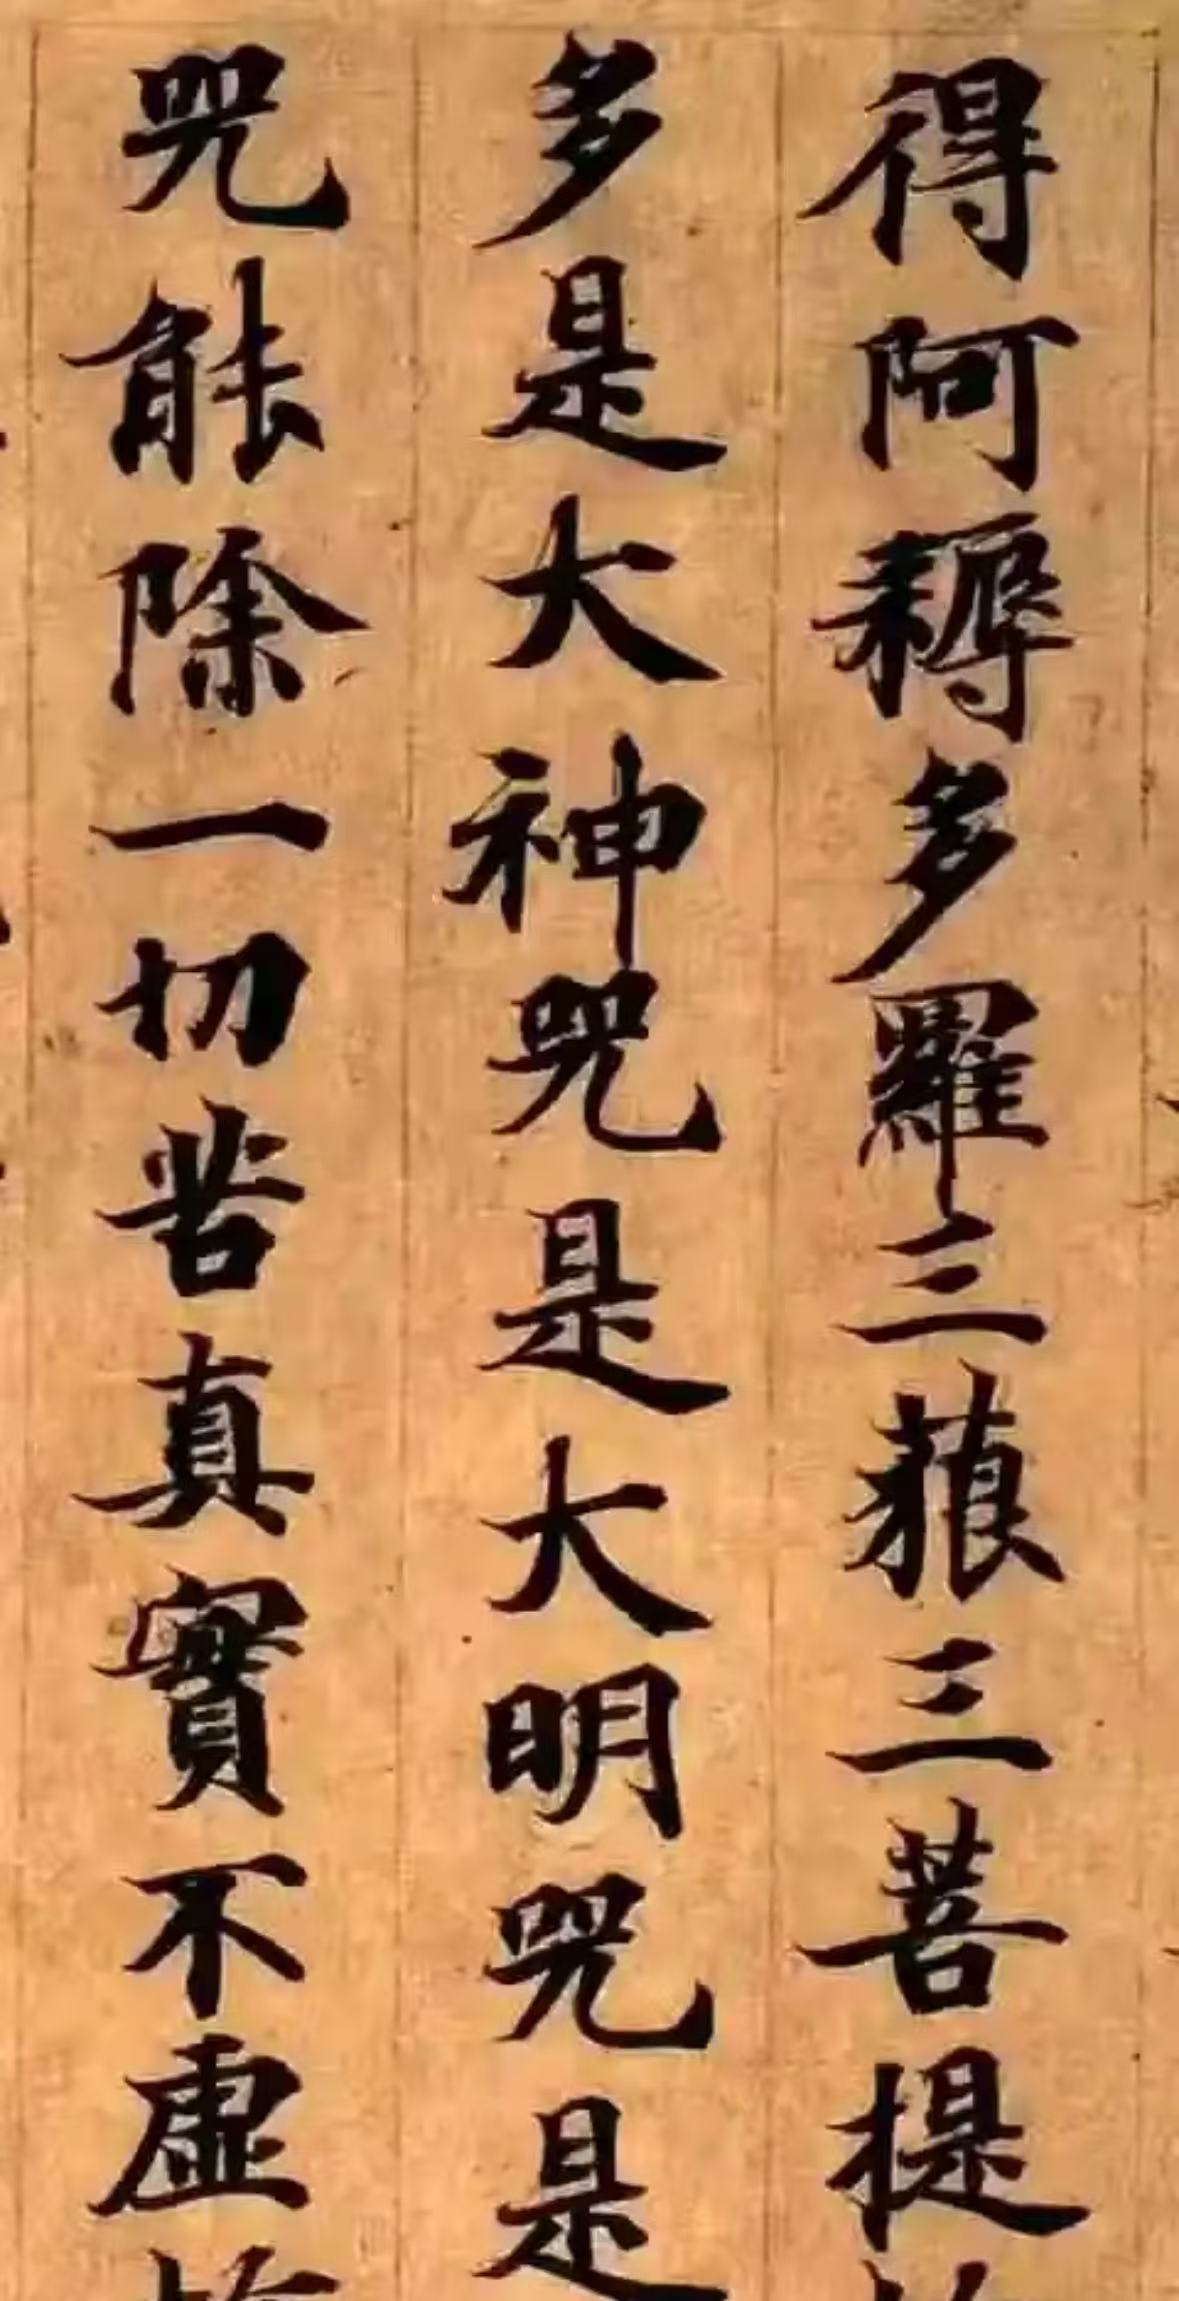 得阿耨多羅三藐三菩提
多是大神咒是大明咒是
咒能除一切苦真實不虛